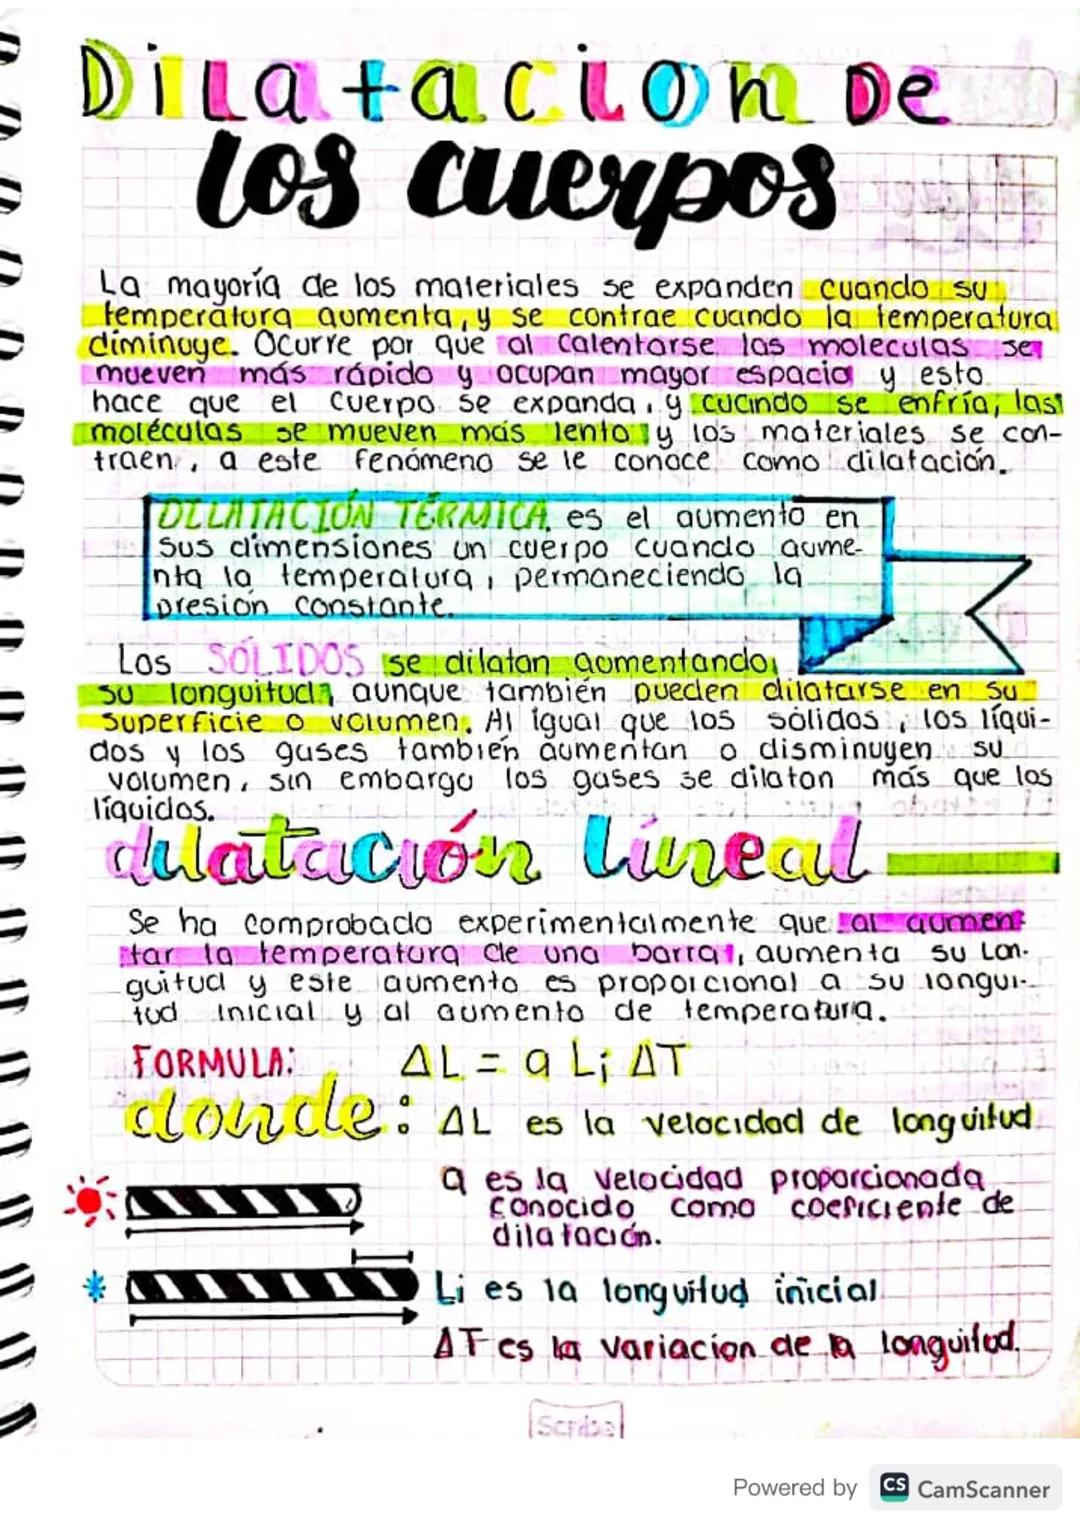 Dilatacion De
los cuerpos
La mayoría de los materiales se expanden cuando su
temperatura aumenta, y se contrae cuando la temperatura
diminuye. Ocurre por que al calentarse las moleculas se
mueven más rápido y ocupan mayor espacio y esto
hace que el cuerpo se expanda, y cuando se enfría, las
moléculas se mueven más lento y los materiales se con-
traen, a este fenómeno se le conoce como dilatación.
DILATACIÓN TÉRMICA. es el aumento en
sus dimensiones un cuerpo cuando aume-
nta la temperatura, permaneciendo la
presión constante.
Los SÓLIDOS se dilatan aumentando
su longuitud, aunque también pueden dilatarse en su
superficie o volumen. Al igual que los sólidos, los líqui-
dos y los gases también aumentan o disminuyen su
volumen, sin embargo los gases se dilatan más que los
líquidos.
dilatación líneal
Se ha comprobado experimentalmente que al aumen-
tar la temperatura de una barra, aumenta su lon-
guitud y este aumento es proporcional a su longui-
tud inicial y al aumento de temperatura.
FORMULA: ΔL = a Li ΔT
donde: ΔL es la velocidad de longuitud
a es la velocidad proporcionada
conocido como coeficiente de
dilatación.
Li es la longuitud inicial
ΔT es la variacion de la longuitud.
Scribe
Powered by CS CamScanner